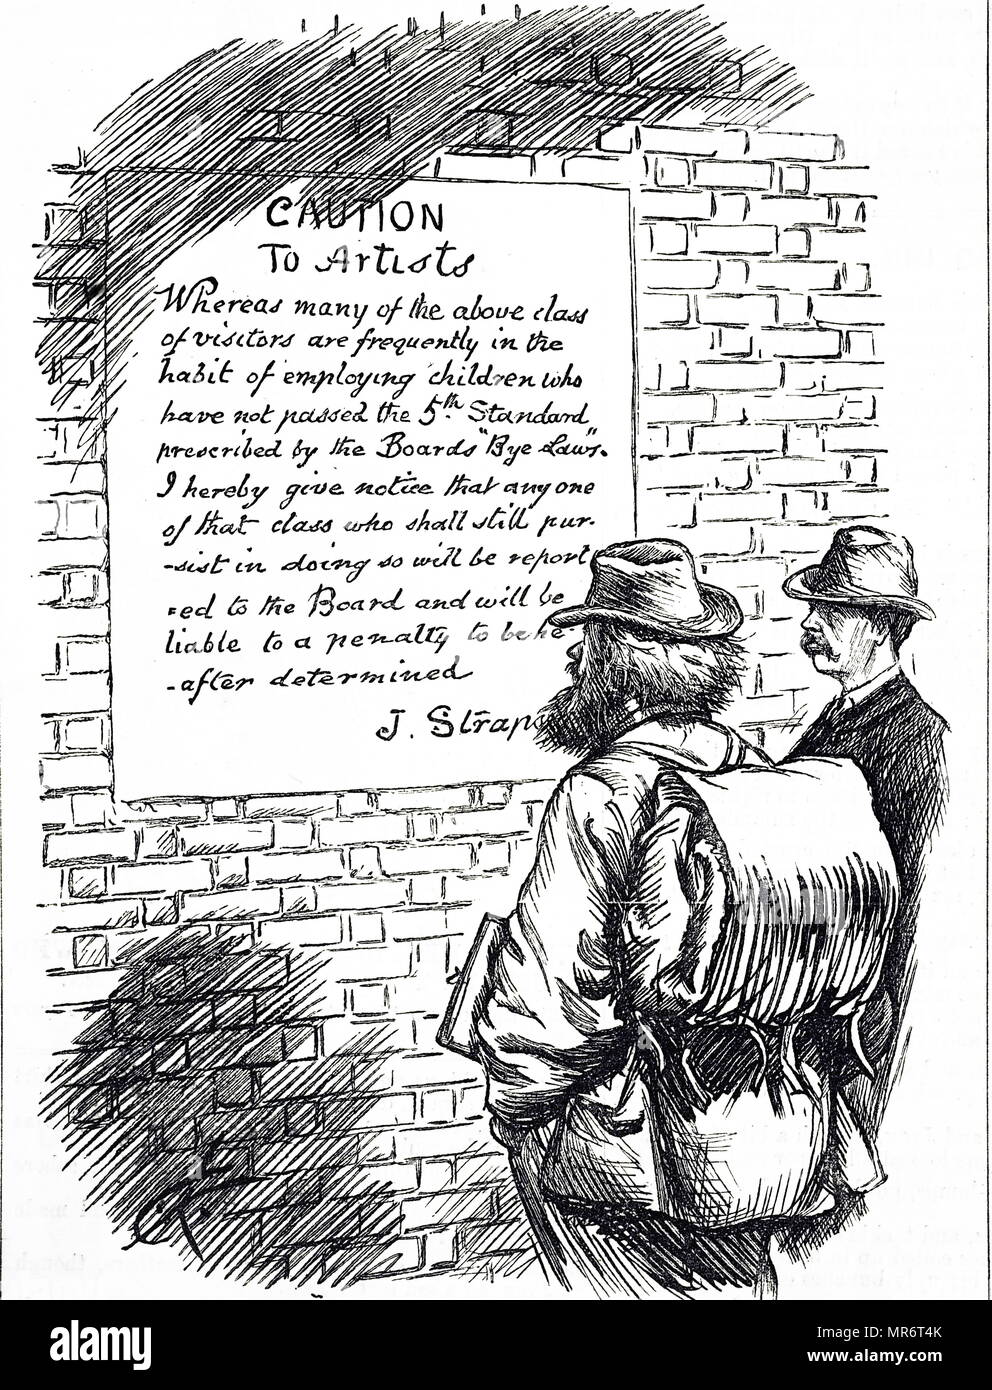 CAUTION
To Artists
Whereas many of the above class
of visitors are frequently in the
habit of employing children who
have not passed the 5th Standard
prescribed by the Boards "Bye Laws".
I hereby give notice that any one
of that class who shall still pur-
-sist in doing so will be report
-ed to the Board and will be
liable to a penalty to be he-
-after determined
J. Strap
alamy
Image ID: MR6T4K
www.alamy.com